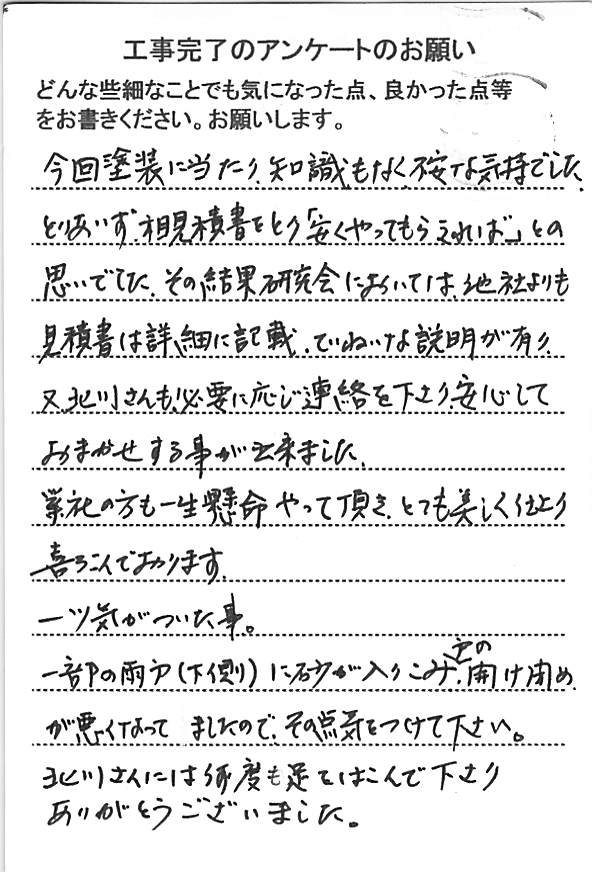 工事完了のアンケートのお願い
どんな些細なことでも気になった点、良かった点等
をお書きください。お願いします。
今回塗装に当たり、知識もなく、不安な気持でした、
とりあいず、相見積書をとり「安くやってもらえれば」との
思いでした、その結果研究会においては、他社よりも
見積書は詳細に記載、ていねいな説明が有り、
又、北川さんも、必要に応じ連絡を下さり、安心して
おまかせする事が出来ました。
業社の方も一生懸命やって頂き、とても美しく仕上り
喜ろこんでおります。
一ツ気がついた事。
戸の
一部の雨戸(下側)に砂が入りこみ、開け閉め
が悪くなって ましたので、その点気をつけて下さい。
北川さんには何度も足をはこんで下さり
ありがとうございました。